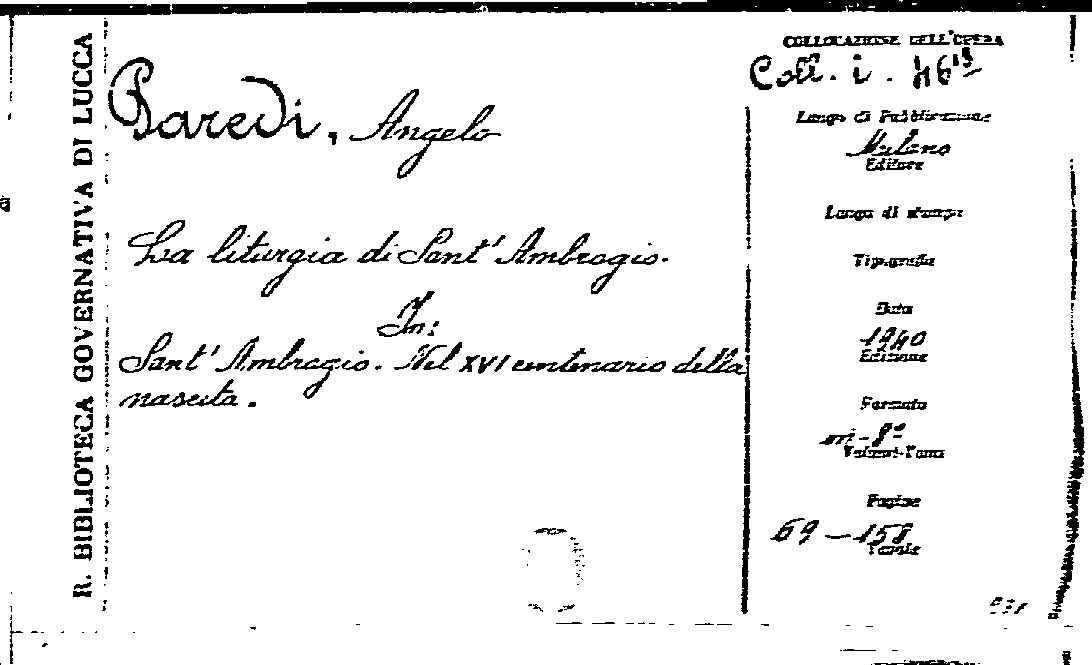 R. BIBLIOTECA GOVERNATIVA DI LUCCA
Paredi, Angelo
La liturgia di Sant' Ambrogio.
In:
Sant' Ambrogio. Nel XVI centenario della
nascita.
COLLOCAZIONE DELL'OPERA
Coll. i. 46
Luogo di Pubblicazione
Milano
Editore
Luogo di stampa
Tipografia
Data
1940
Edizione
Formato
in-8°
Volumi-Tomi
Pagine
69-158
Tavole